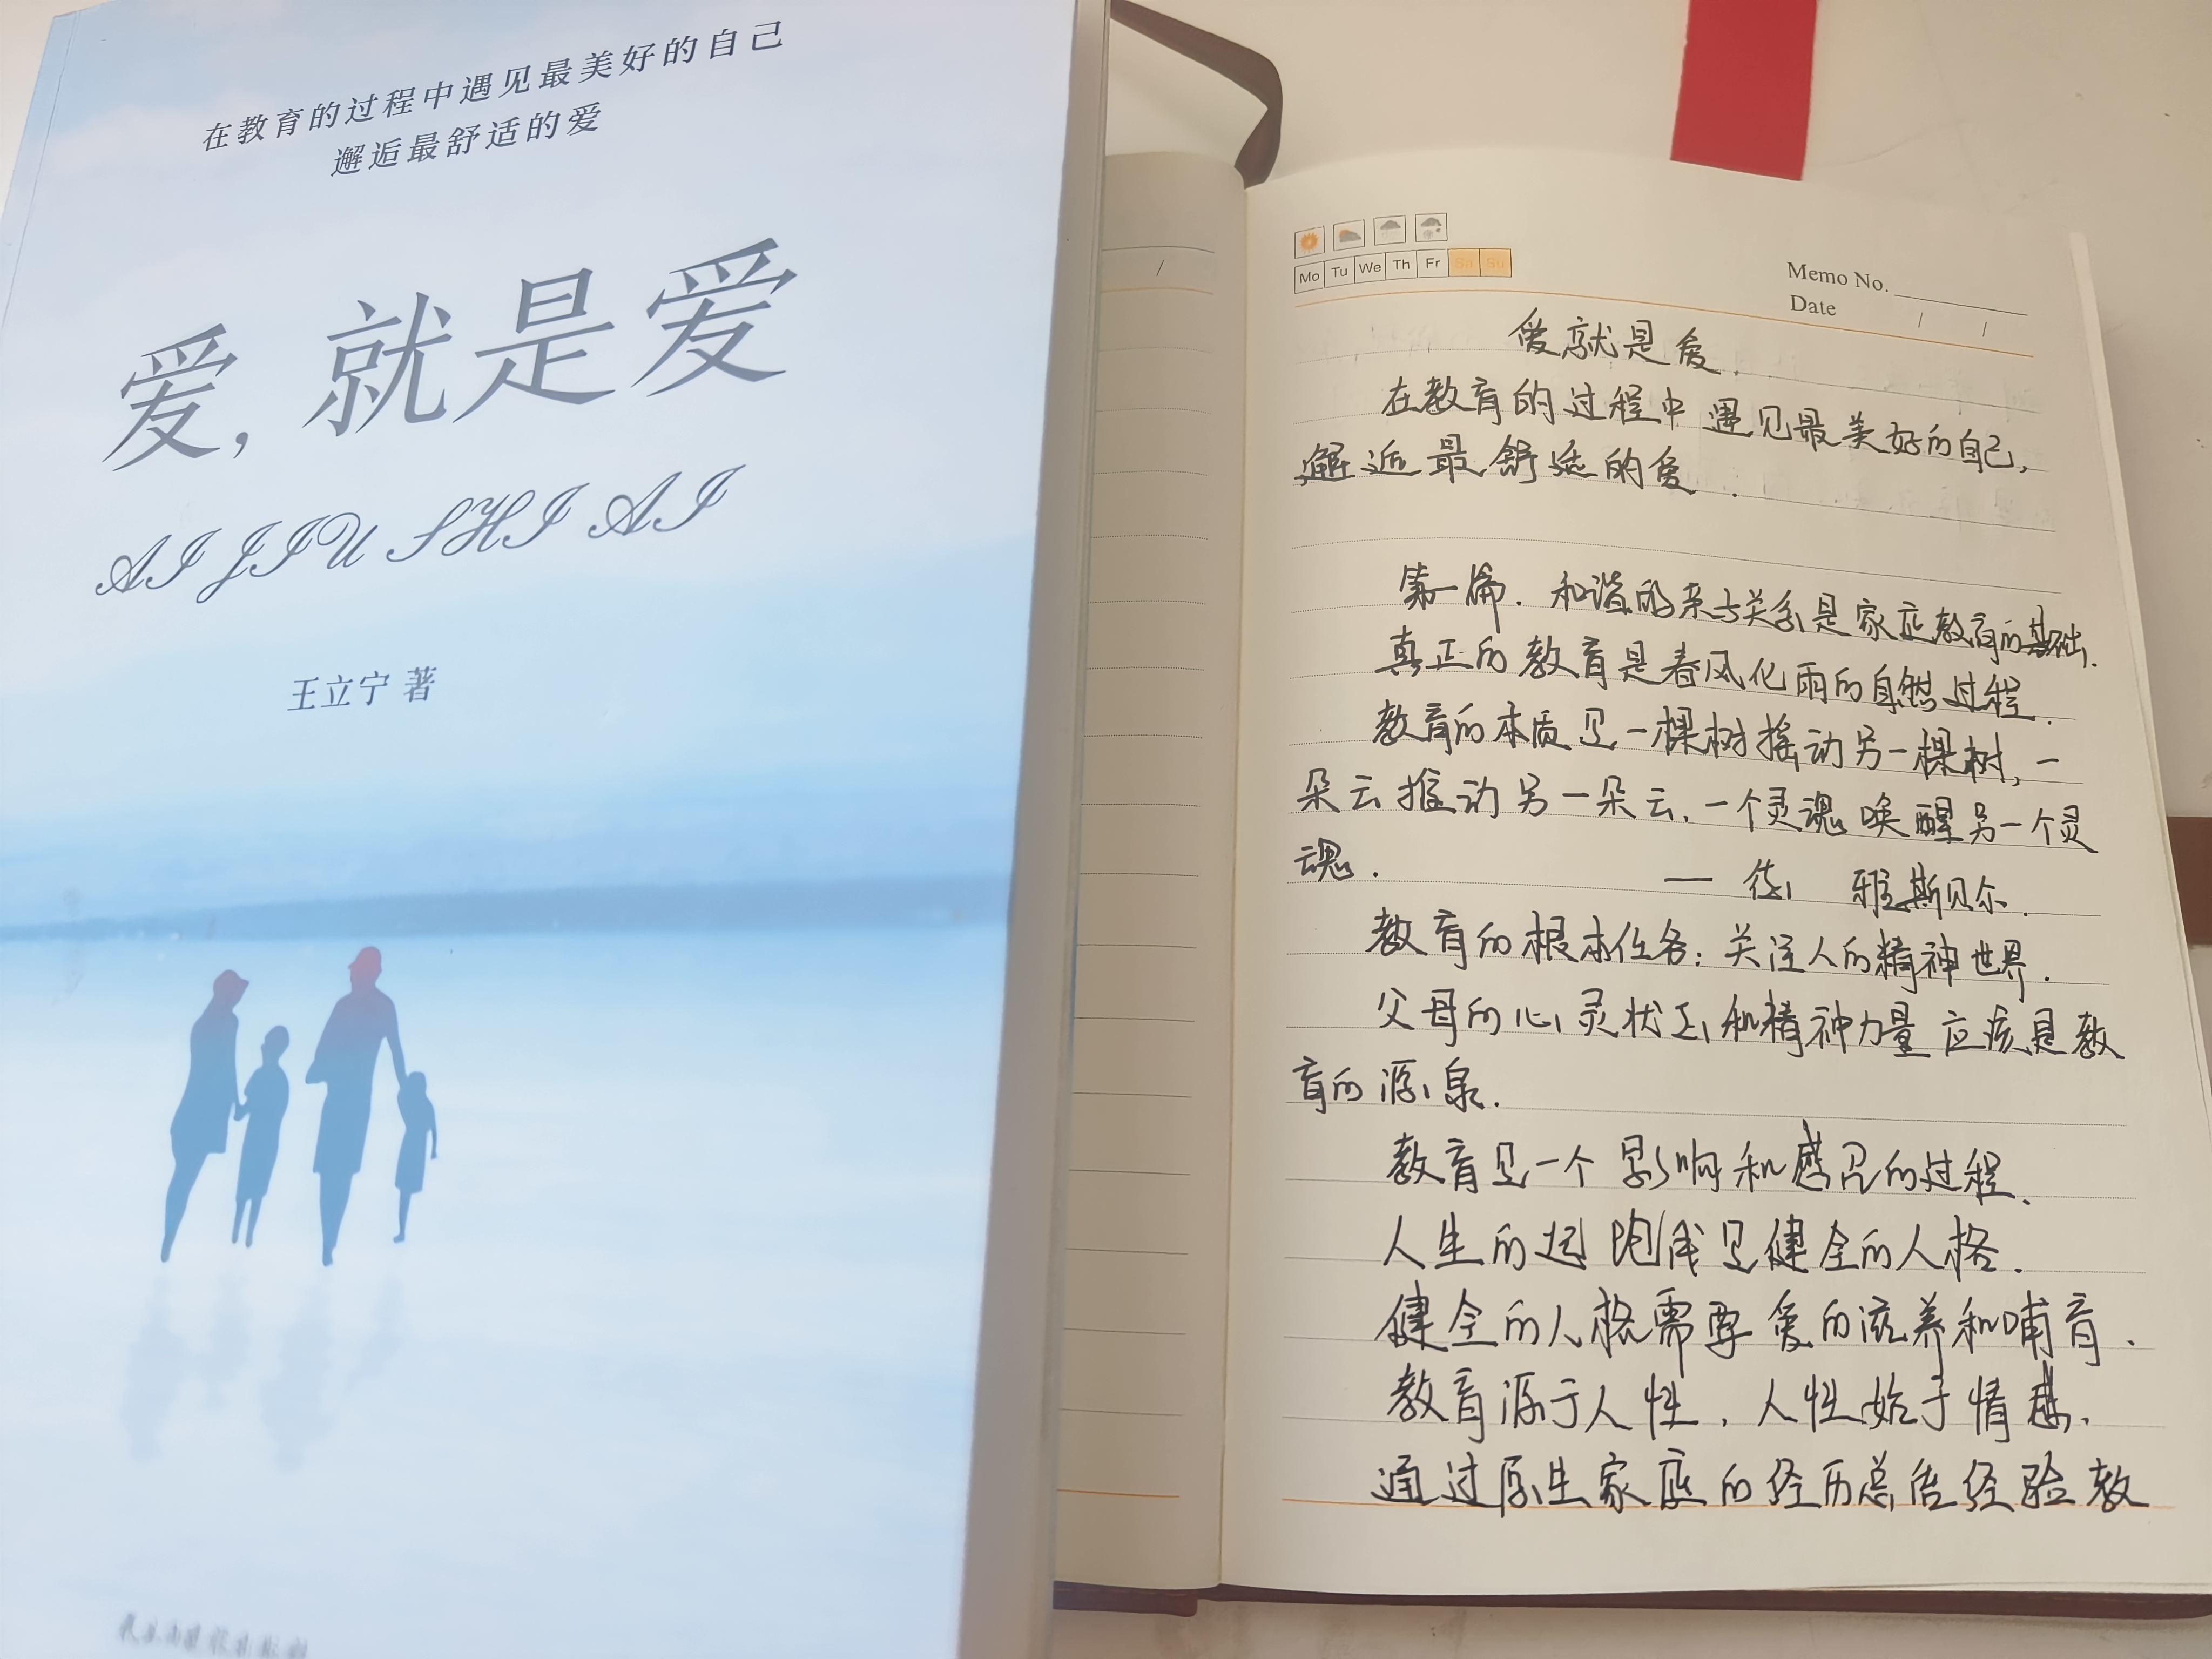 在教育的过程中遇见最美好的自己
邂逅最舒适的爱
爱,就是爱
AI JIU SHI AI
王立宁 著
Mo Tu We Th Fr Sa Su
Memo No.
Date / /
爱就是爱.
在教育的过程中遇见最美好的自己,
邂逅最舒适的爱.
第一篇.和谐的亲子关系是家庭教育的基础.
真正的教育是春风化雨的自然过程.
教育的本质是一棵树摇动另一棵树,一
朵云推动另一朵云,一个灵魂唤醒另一个灵
魂.
— 德 雅斯贝尔.
教育的根本任务:关注人的精神世界.
父母的心灵状态和精神力量应该是教
育的源泉.
教育是一个影响和感召的过程.
人生的起跑线是健全的人格.
健全的人格需要爱的滋养和哺育.
教育源于人性,人性始于情感.
通过原生家庭的经历总结经验教